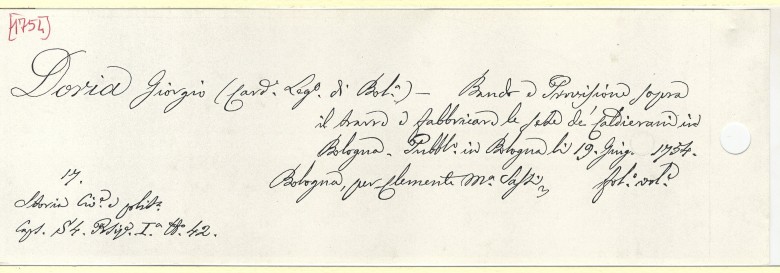 [1754]
Doria Giorgio (Card. Leg.º di Bol.ª) — Bando e Provisione sopra
il trarre e fabbricare le sete de' Caldierani in
Bologna. Pubbl.º in Bologna li 19. Giug. 1754.
17. Bologna, per Clemente M.ª Sassi, fol.º vol.º
Storia Civ.e e polit.ª
Cart. S4. N.º 42.